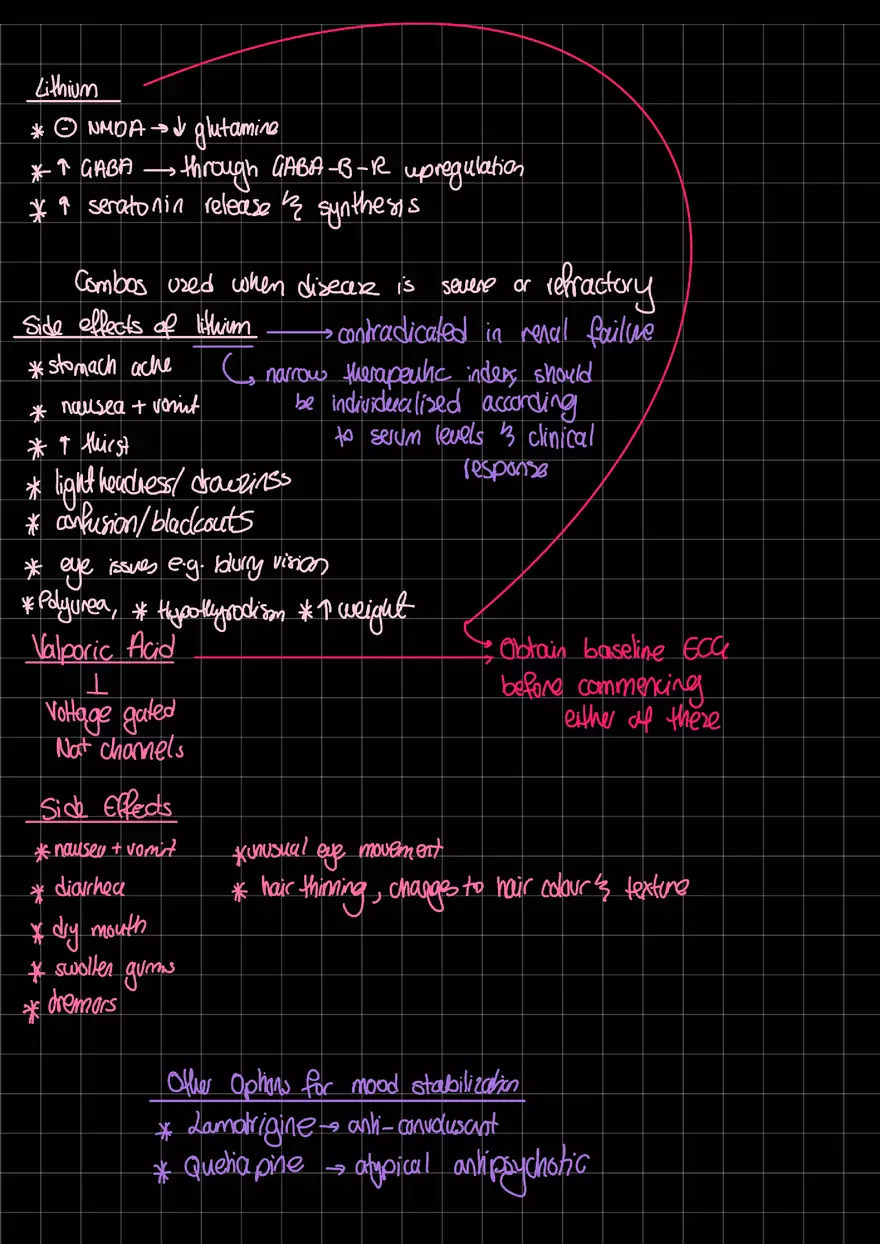 Lithium
* ⊖ NMDA → ↓ glutamine
* ↑ GABA → through GABA-B-R upregulation
* ↑ seratonin release & synthesis
Combos used when disease is severe or refractory
Side effects of lithium → contradicated in renal failure
* stomach ache
narrow therapeutic index, should
be individualised according
to serum levels & clinical
response
* nausea + vomit
* ↑ thirst
* lightheadness/drowziness
* confusion/blackouts
* eye issues e.g. blurry vision
* Polyurea, * Hypothyrodism * ↑ weight
Valporic Acid → Obtain baseline ECG
before commencing
either of these
⊥
Voltage gated
Na+ channels
Side Effects
* nausea + vomit * unusual eye movement
* diarrhea * hair thinning, changes to hair colour & texture
* dry mouth
* swollen gums
* tremors
Other Options for mood stabilization
* Lamotrigine → anti-convulusant
* Quetiapine → atypical antipsychotic